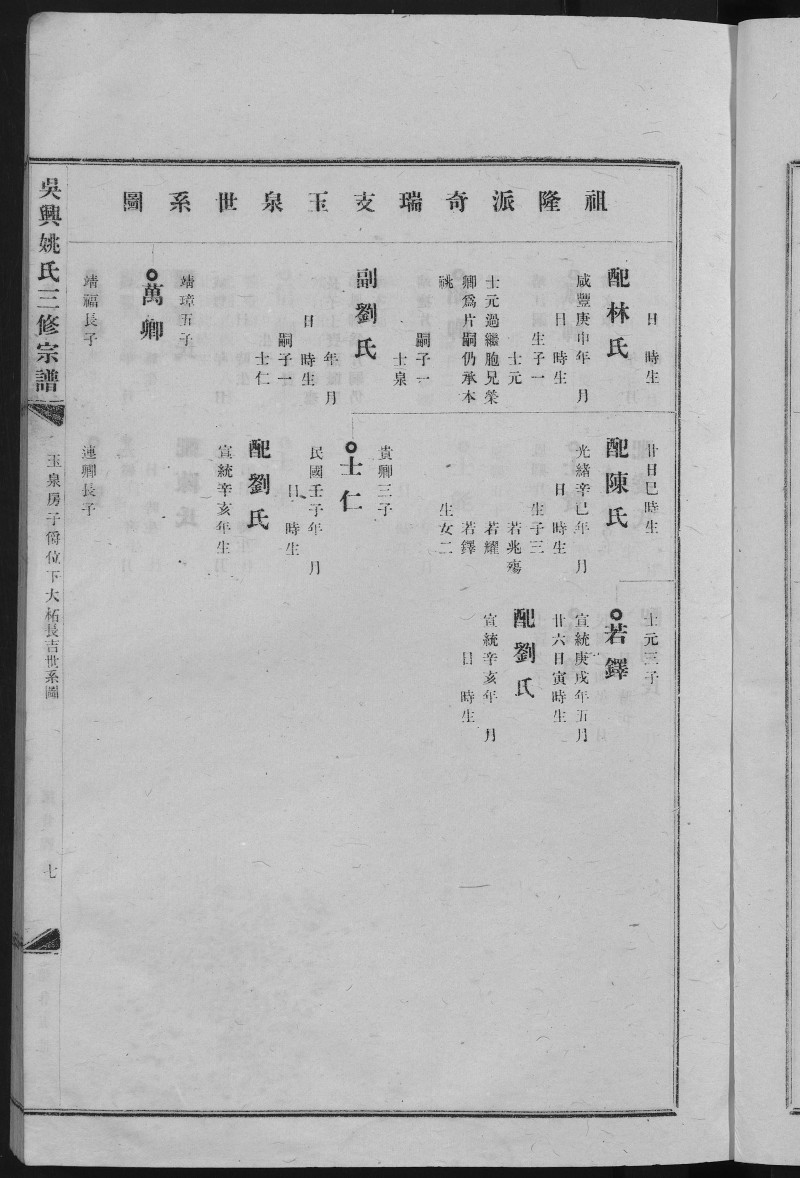 祖隆派奇瑞支玉泉世系圖
日　時生
配林氏
咸豐庚申年　月
日　時生
生子一
士元
士元過繼胞兄榮
卿爲片嗣仍承本
祧
嗣子一
士泉
副劉氏
年　月
日　時生
嗣子一
士仁
靖璋五子
萬卿
靖福長子
廿日巳時生
配陳氏
光緒辛巳年　月
日　時生
生子三
若兆殤
若耀
若鐸
生女二
貴卿三子
士仁
民國壬子年　月
日　時生
配劉氏
宣統辛亥年生
連卿長子
士元三子
若鐸
宣統庚戌年五月
廿六日寅時生
配劉氏
宣統辛亥年　月
日　時生
吳興姚氏三修宗譜
玉泉房子爵位下大柘長吉世系圖
七